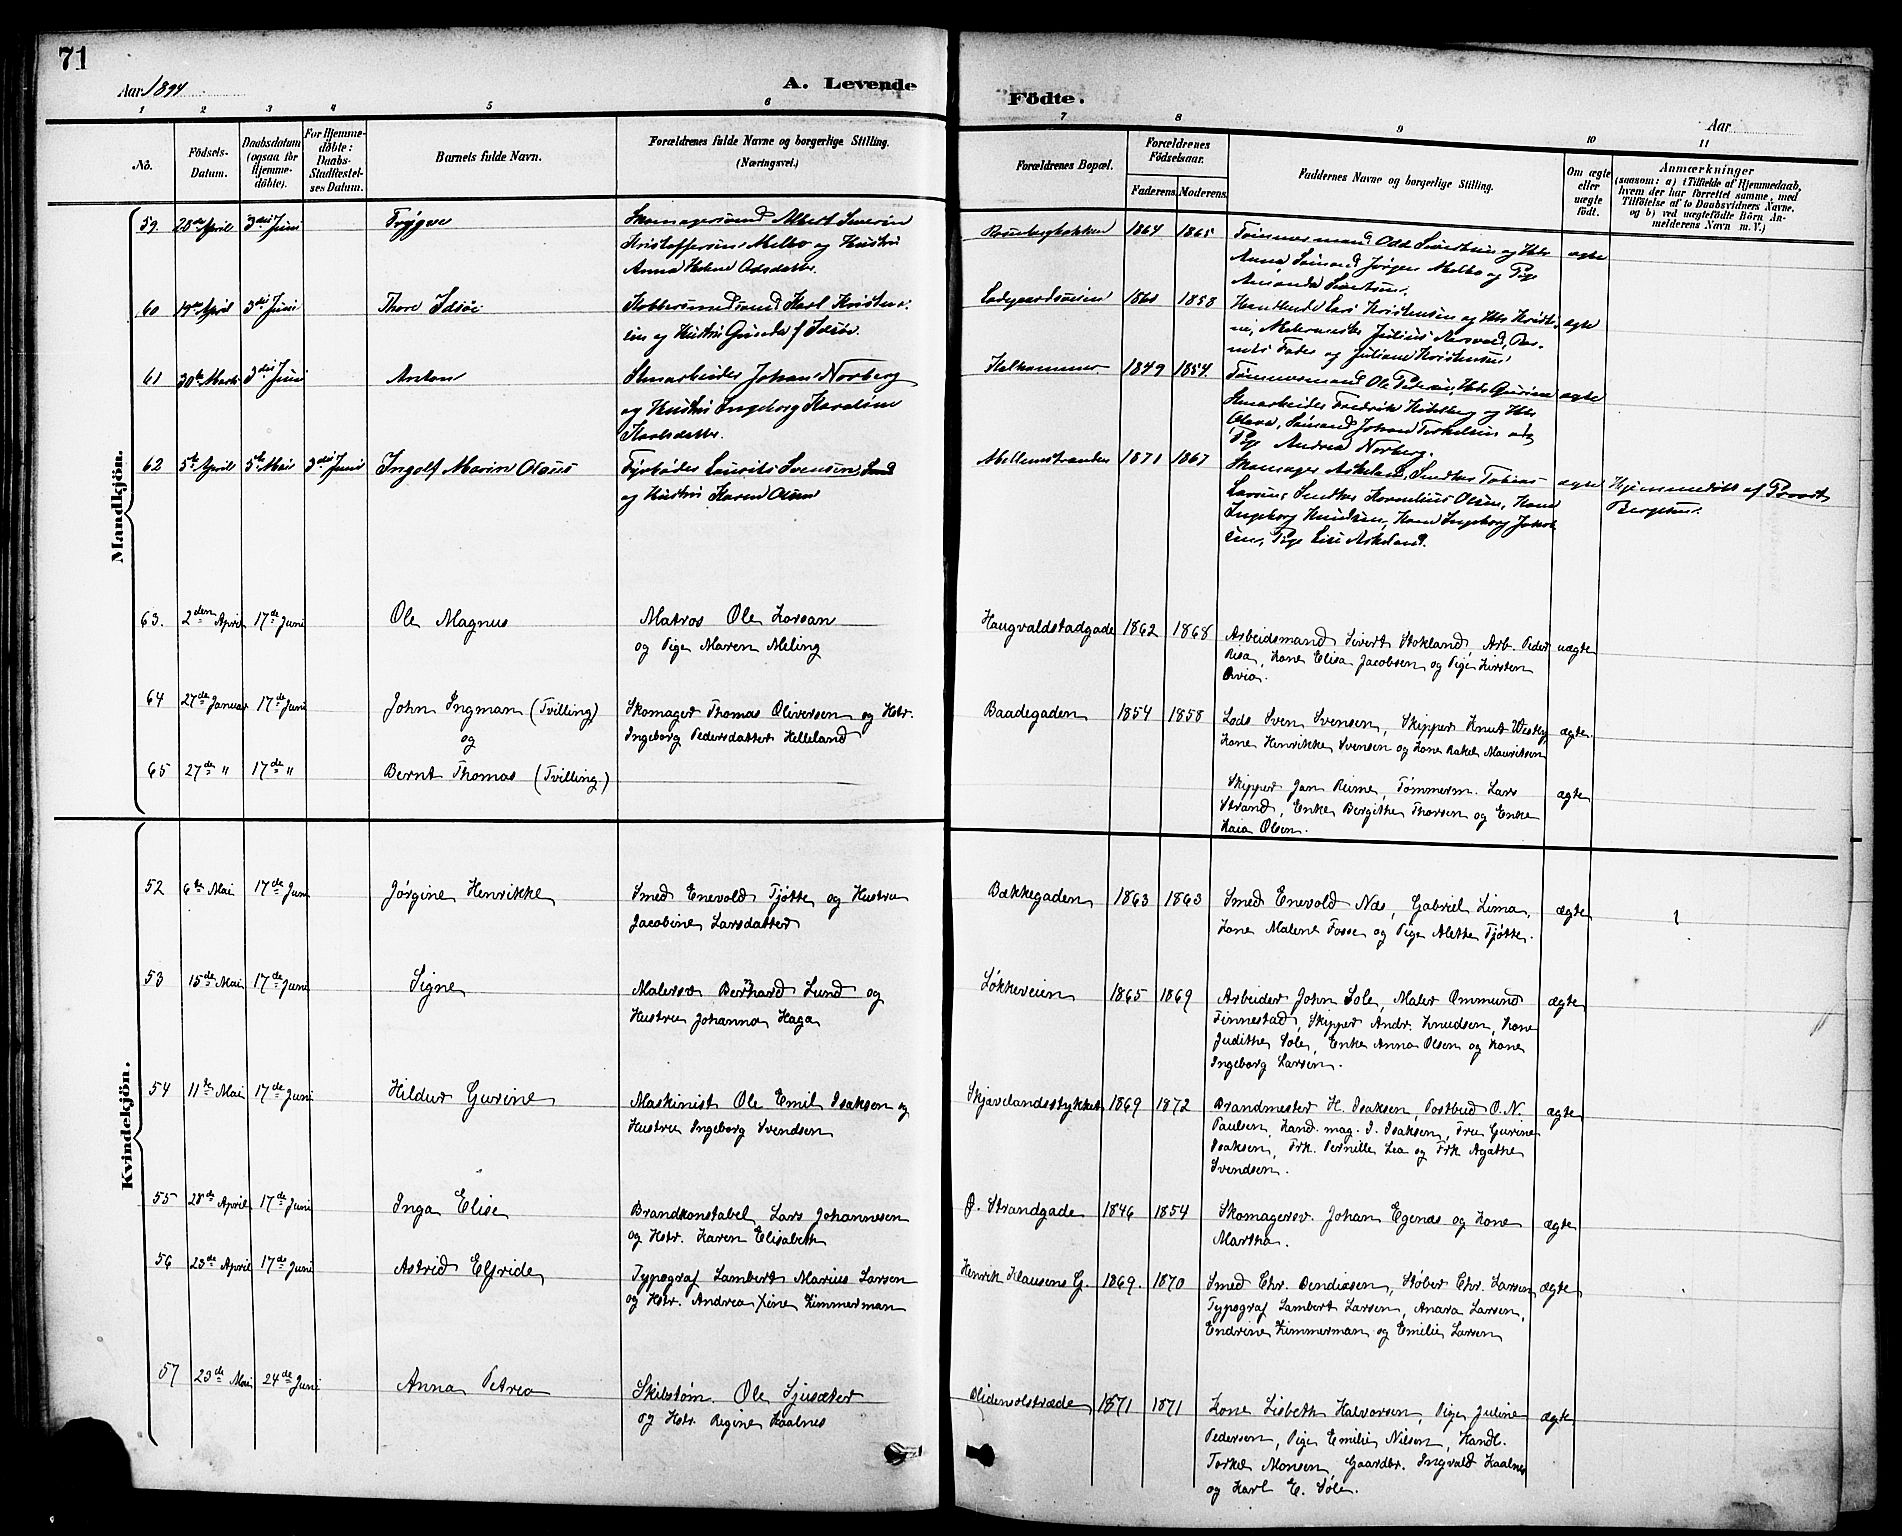 71
Aar 1894
A. Levende
Födte.
Aar
1 2 3 4 5 6 7 8 9 10 11
No.
Födsels-Datum.
Daabsdatum (ogsaa for Hjemmedöbte).
For Hjemmedöbte: Daabs-Stadfæstelses Datum.
Barnets fulde Navn.
Forældrenes fulde Navne og borgerlige Stilling.
(Næringsvei.)
Forældrenes Bopæl.
Forældrenes Födselsaar.
Faderens. Moderens.
Faddernes Navne og borgerlige Stilling.
Om ægte eller uægte födt.
Anmærkninger
(saasom: a) i Tilfælde af Hjemmedaab,
hvem der har forrettet samme, med
Tilföielse af to Daabsvidners Navne,
og b) ved uægtefödte Börn Anmelderens Navn m. V.)
Mandkjön.
59. 28de April 3die Juni Trygve Skomagersvend Albert Severin 1864 1865 ægte
Kristoffersen Melbo og Hustru
Anna Helene Odsdatter.
Anna, Sømand Jørgen Melbo og Pige
60 19de April 3die Juni Thore Idsøe Kobbersmedsvend Karl Kristen- Ladegaardsveien 1858 ægte
sen og Hustru Gunda f. Idsøe.
Handlende Lars Kristensen og Hstr Kristi-
ne, Malermester Julius Aarsvold, Bar-
nets Fader og Juliane Kristensen
61 30te Marts 3die Juni Anton Stenarbeider Johan Norberg Kalhammer 1849 1854. ægte
og Hustru Ingeborg Karoline
Karlsdatter.
Tømmermand Ole Pedersen, Hstr Gurine
Stenarbeider Fredrik Hidelberg og Hstr
Olava, Sømand Johan Terkelsen og
Pige Andrea Norberg.
62 5te April 5te Mai 3die Juni Ingolf Marin Olaus Fyrbøder Laurits Svensen Lund Mellemstranden 1871 1867 ægte
og Hustru Karen Olsen
Skomager Askeland, Snedker Tobias
Larsen, Snedker Kornelius Olsen, Kone
Ingeborg Knudsen, Kone Ingeborg Jakob-
sen, Pige Lise Askeland.
Hjemmedøbt af Provst
Bergesen.
63. 2den April 17de Juni Ole Magnus Matros Ole Larsen Haugvaldstadgade 1862 1868 Arbeidsmand Sivert Stokland, Arb. Peder uægte
og Pige Maren Meling Risa, Kone Elisa Jacobsen og Pige Kirsten
Qvia.
64 27de Januar 17de Juni John Ingman (Tvilling) Skomager Thomas Oliversen og Hstr. Baadegaden 1854 1858 Lods Sven Svensen, Skipper Knut Westby, ægte
og Ingeborg Pedersdatter Helleland Kone Henrikke Svensen og Kone Rakel Mauritsen
65 27de " 17de " Bernt Thomas (Tvilling) Skipper Jan Reime, Tømmerm. Lars ægte
Strand, Enke Bergithe Thorsen og Enke
Kaia Olsen.
Kvindekjön.
52 6te Mai 17de Juni Jørgine Henrikke Smed Enevold Tjøtte og Hustru Bækkegaden 1863 1863 Smed Enevold Næs, Gabriel Lima, ægte
Jacobine Larsdatter Kone Malene Fosse og Pige Alette Tjøtte.
53 15de Mai 17de Juni Signe Malersv. Bernhard Lund og Løkkeveien 1865 1869 Arbeider John Sole, Maler Ommund ægte
Hustru Johanna Haga Finnestad, Skipper Andr. Knudsen, Kone
Judithe Sole, Enke Anna Olsen og Kone
Ingeborg Larsen.
54 11te Mai 17de Juni Hildur Gurine Maskinist Ole Emil Isaksen og Skjævelandsstykket 1869 1872 Brandmester H. Isaksen, Postbud O. N. ægte
Hustru Ingeborg Svendsen Paulsen, Kand. mag. I. Isaksen, Fru Gurine
Isaksen, Frk. Pernille Lea og Frk Agathe
Svendsen.
55 28de April 17de Juni Inga Elise Brandkonstabel Lars Johannesen Ø. Strandgade 1846 1854 Skomagersv. Johan Egenæs og Kone ægte
og Hstr. Karen Elisabeth Martha.
56 23de April 17de Juni Astrid Elfride Typograf Lambert Marius Larsen Henrik Klausens G. 1869. 1870 Smed Chr. Bendixsen, Støber Chr. Larsen ægte
og Hstr. Andrea Xine Zimmerman Typograf Lambert Larsen, Anara Larsen,
Endrine Zimmerman og Emilie Larsen
57 23de Mai 24de Juni Anna Petrea Skibstøm. Ole Sjusæter 1871 1871 Kone Lisbeth Halvorsen, Pige Juline ægte
og Hstr. Regine Kaalnes Pedersen, Pige Emilie Nilsen, Handl.
Torkel Monsen, Gaardbr. Ingvald Kaalnes
og Karl E. Sole.